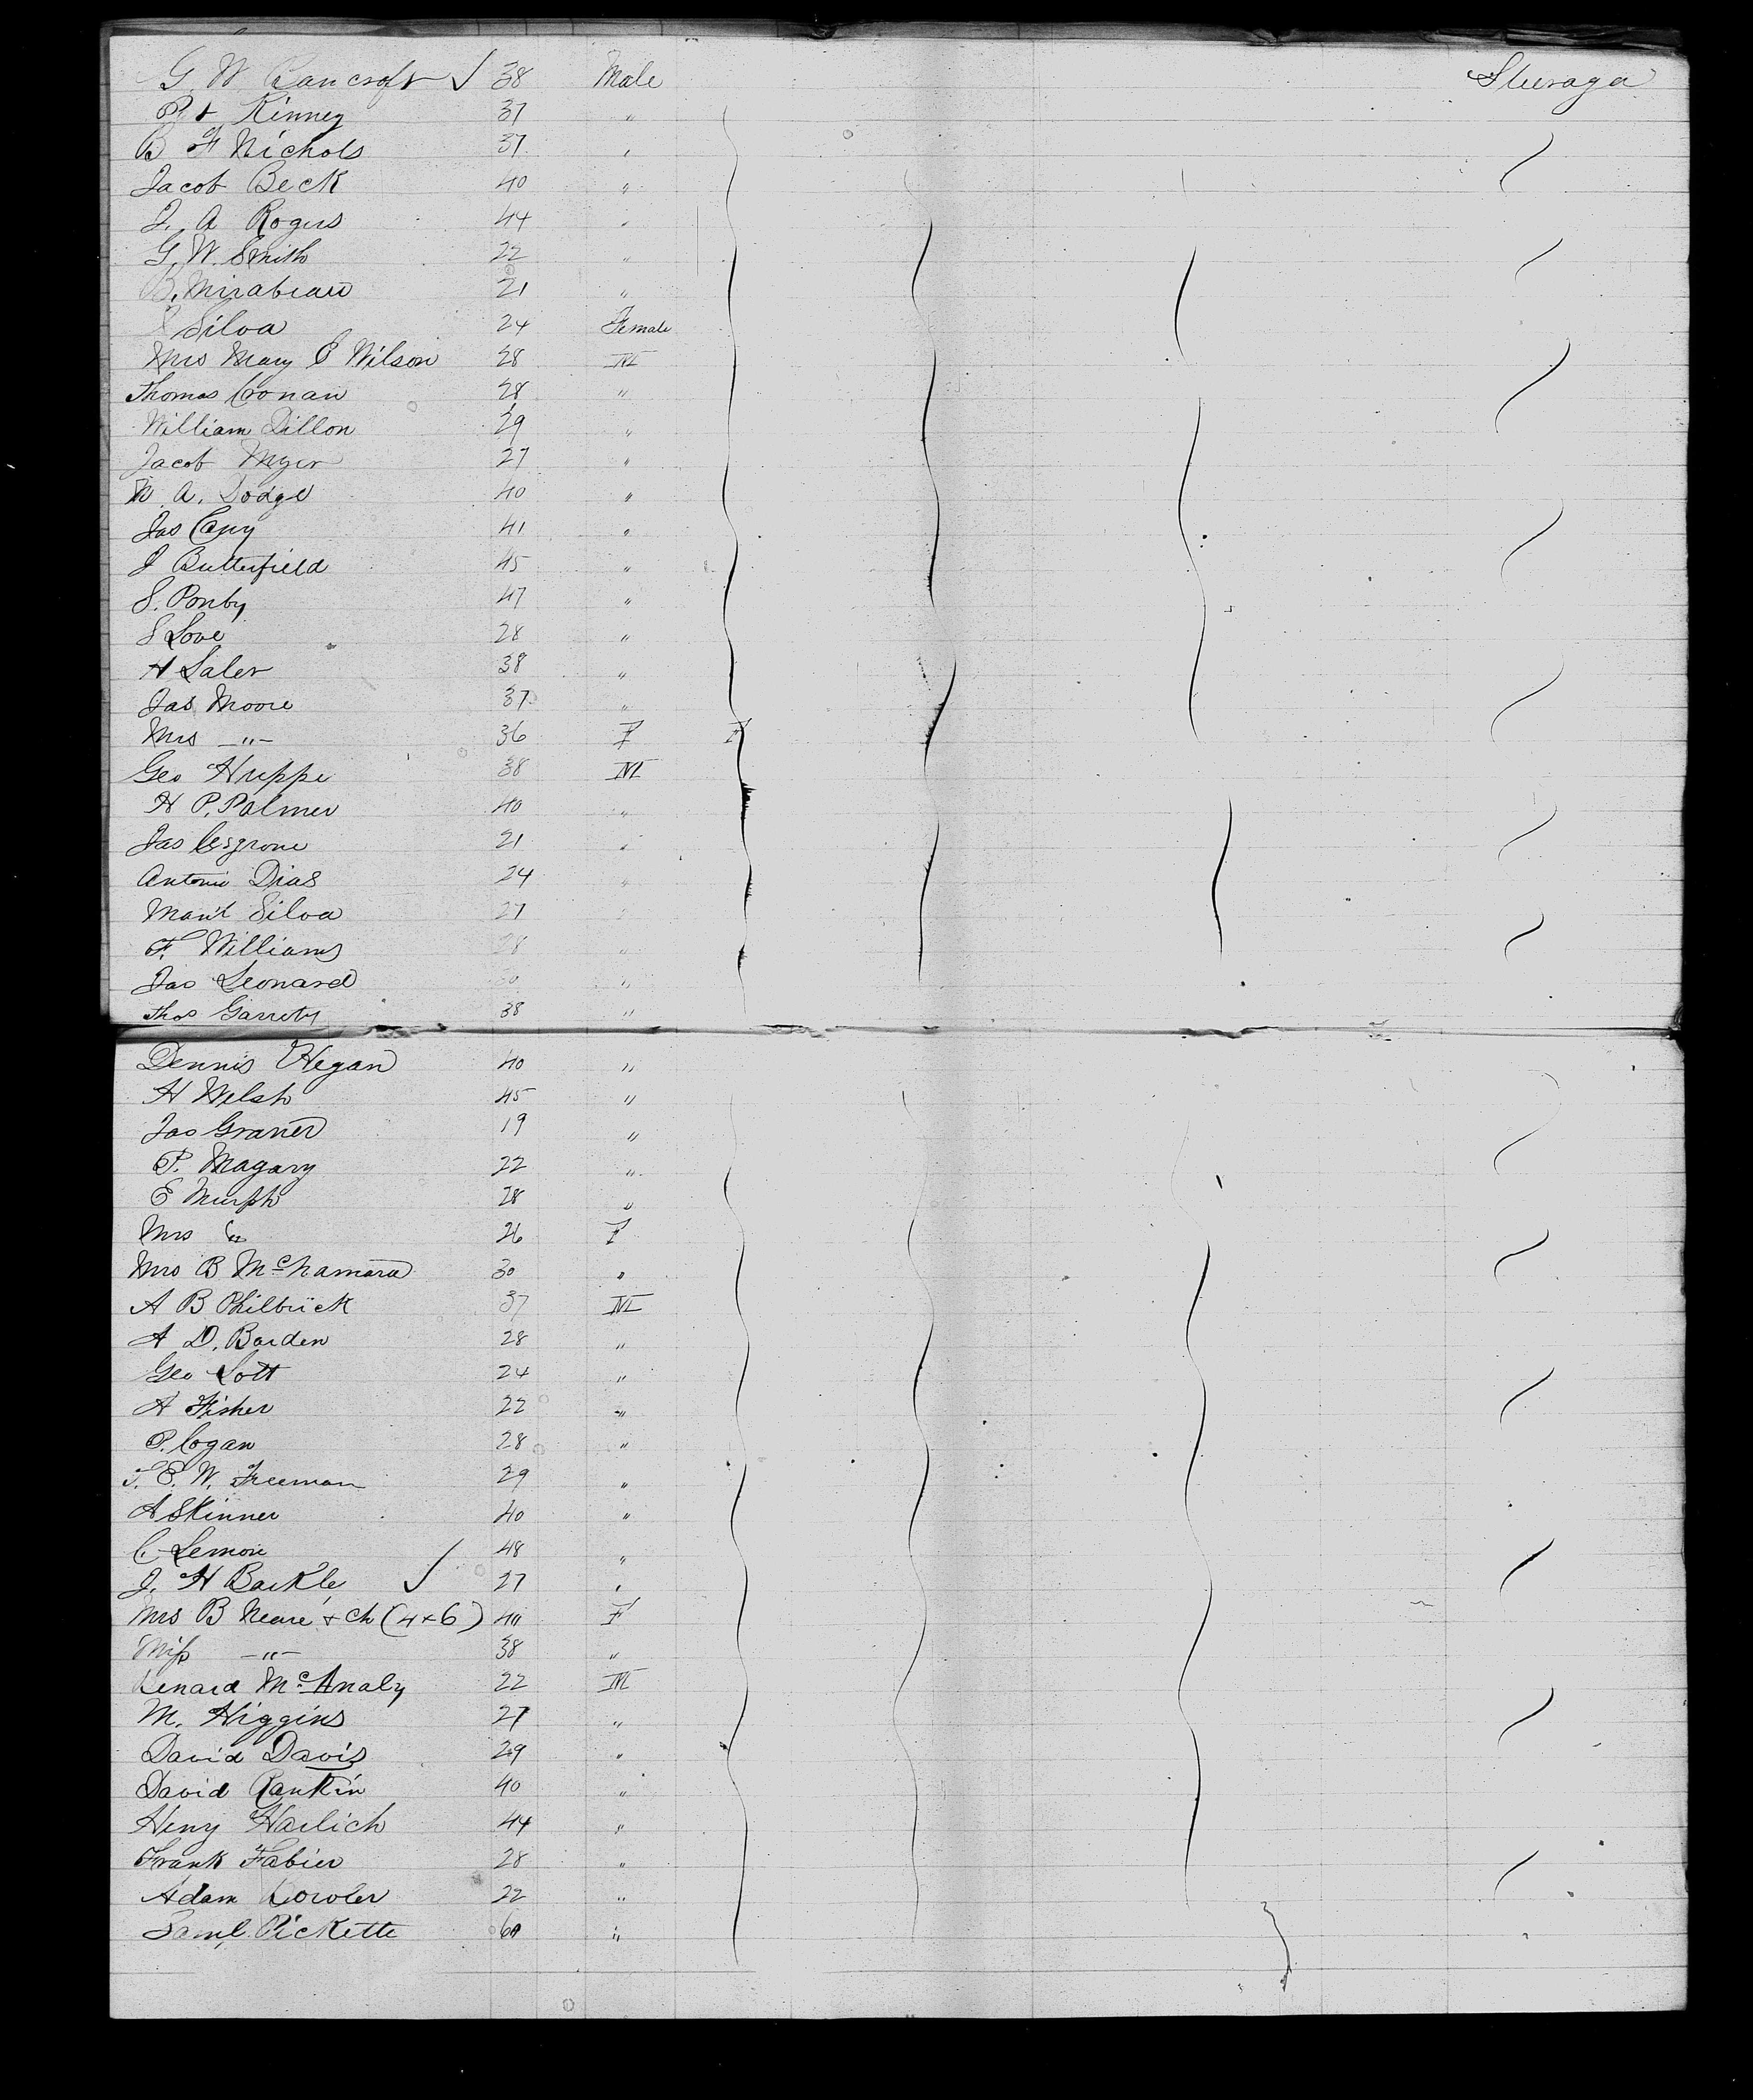 G. W. Bancroft ✓ 38 Male Steerage
Kinney 37 "
B F Nichols 37 "
Jacob Beck 40 "
J. A Rogers 44 "
G. W. Smith 22 "
B. Mirabeau 21 "
Silva 24 Female
Mrs Mary C Wilson 28 M
Thomas Conan 28 "
William Dillon 29 "
Jacob Myer 27 "
A. Dodge 40 "
Jas 41 "
J Butterfield 45 "
S. Ponby 47 "
S Love 28 "
H Saler 38 "
Jas Moore 37 "
Mrs —"— 36 F F
Geo Huppe 38 M
H P. Palmer 40 "
Jas Cosgrove 21 "
Antonio Dias 24 "
Man'l Silva 27 "
F. Williams 28 "
Jas Leonard 30 "
Thos Garrety 38 "
Dennis Hegan 40 "
H Welsh 45 "
Jas Graner 19 "
P. Magary 22 "
E Murph 28 "
Mrs " 26 F
Mrs B McNamara 30 "
A B Philbrick 37 M
A D. Barden 28 "
Geo Lott 24 "
A Fisher 22 "
P. Cogan 28 "
E. W. Freeman 29 "
A Skinner 40 "
C. Lemon 48 "
J. H Barkle ✓ 27 "
Mrs B Neare + ch (4+6) 40 F
Miss —"— 38 "
Lenard McAnaly 22 M
M. Higgins 27 "
David Davis 29 "
David Rankin 40 "
Heny Harlich 44 "
Frank Fabier 28 "
Adam 22 "
Saml. Pickette 60 "